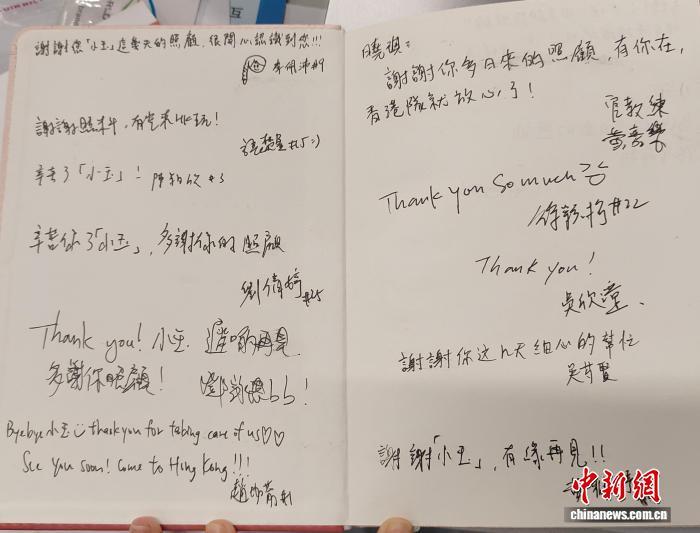 謝謝您「小玉」這幾天的照顧,很開心認識到您!!!
李佩沛#9
謝謝照料,有空來HK玩!
#15:)
辛苦了「小玉」! 陳 #3
辛苦你了「小玉」,多謝你的照顧
劉倩婷
#25
Thank you! 小玉. 有啲再見
多謝你照顧! bb!
Byebye小玉 thankyou for taking care of us♡♡
See you soon! Come to Hong Kong!!!
趙 #1
曉琪:
謝謝你多日來的照顧,有你在,
香港隊就放心了!
官教練
Thank you so much
徐 #22
Thank you!
吳欣潼.
謝謝你这几天细心的幫忙
吳芷賢
謝謝「小玉」,有緣再見!!
中新網
chinanews.com.cn